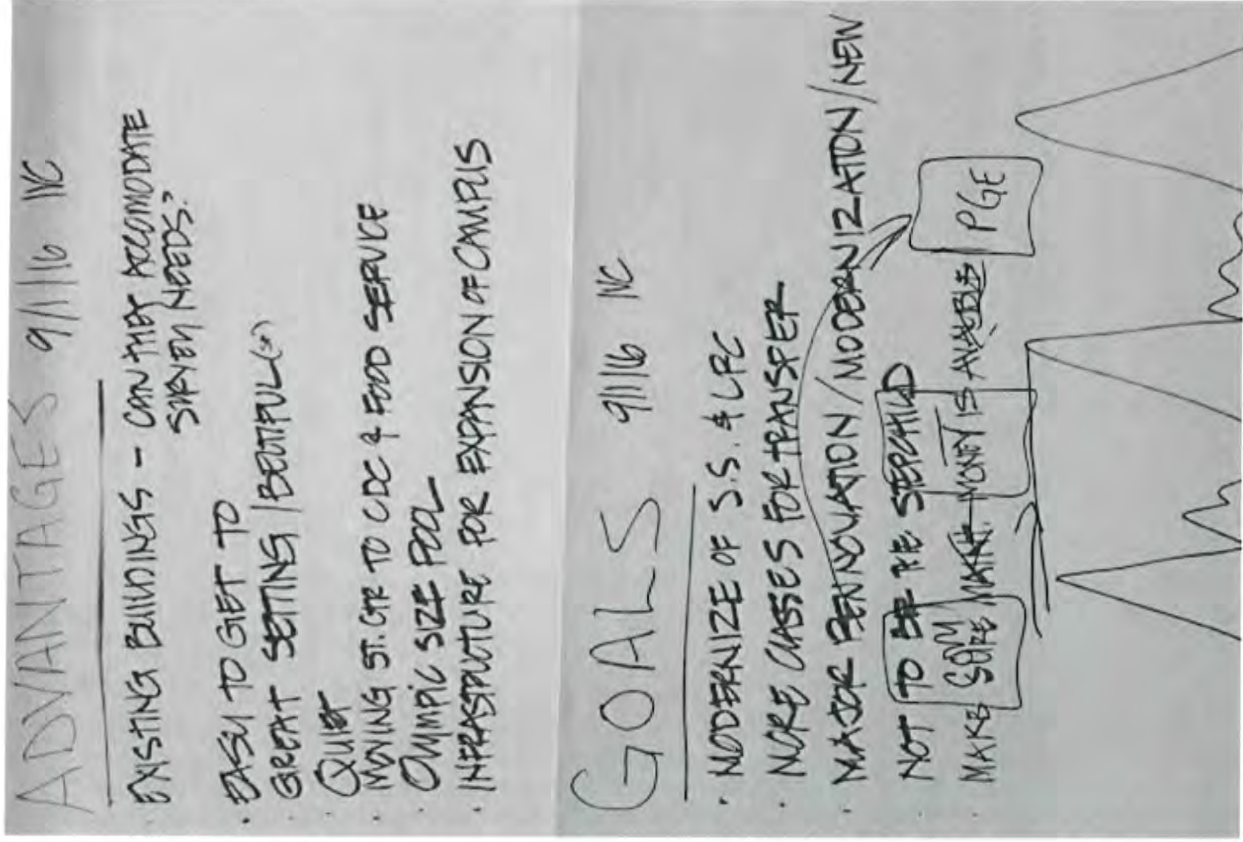 ADVANTAGES 9/1/16 IVC
· EXISTING BUILDINGS - CAN THEY ACCOMODATE
NEEDS?
· EASY TO GET TO
· GREAT SETTING / BEUTIFUL
· QUIET
· MOVING ST. CTR TO CDC & FOOD SERVICE
· OLYMPIC SIZE POOL
· INFRASTRUCTURE FOR EXPANSION OF CAMPUS
GOALS 9/1/16 IVC
· MODERNIZE OF S.S. & LRC
· MORE CLASSES FOR TRANSFER
· MAJOR RENNOVATION / MODERNIZATION / NEW
· NOT TO BE THE STEPCHILD
· MAKE SURE MAINT. MONEY IS
COM
PGE